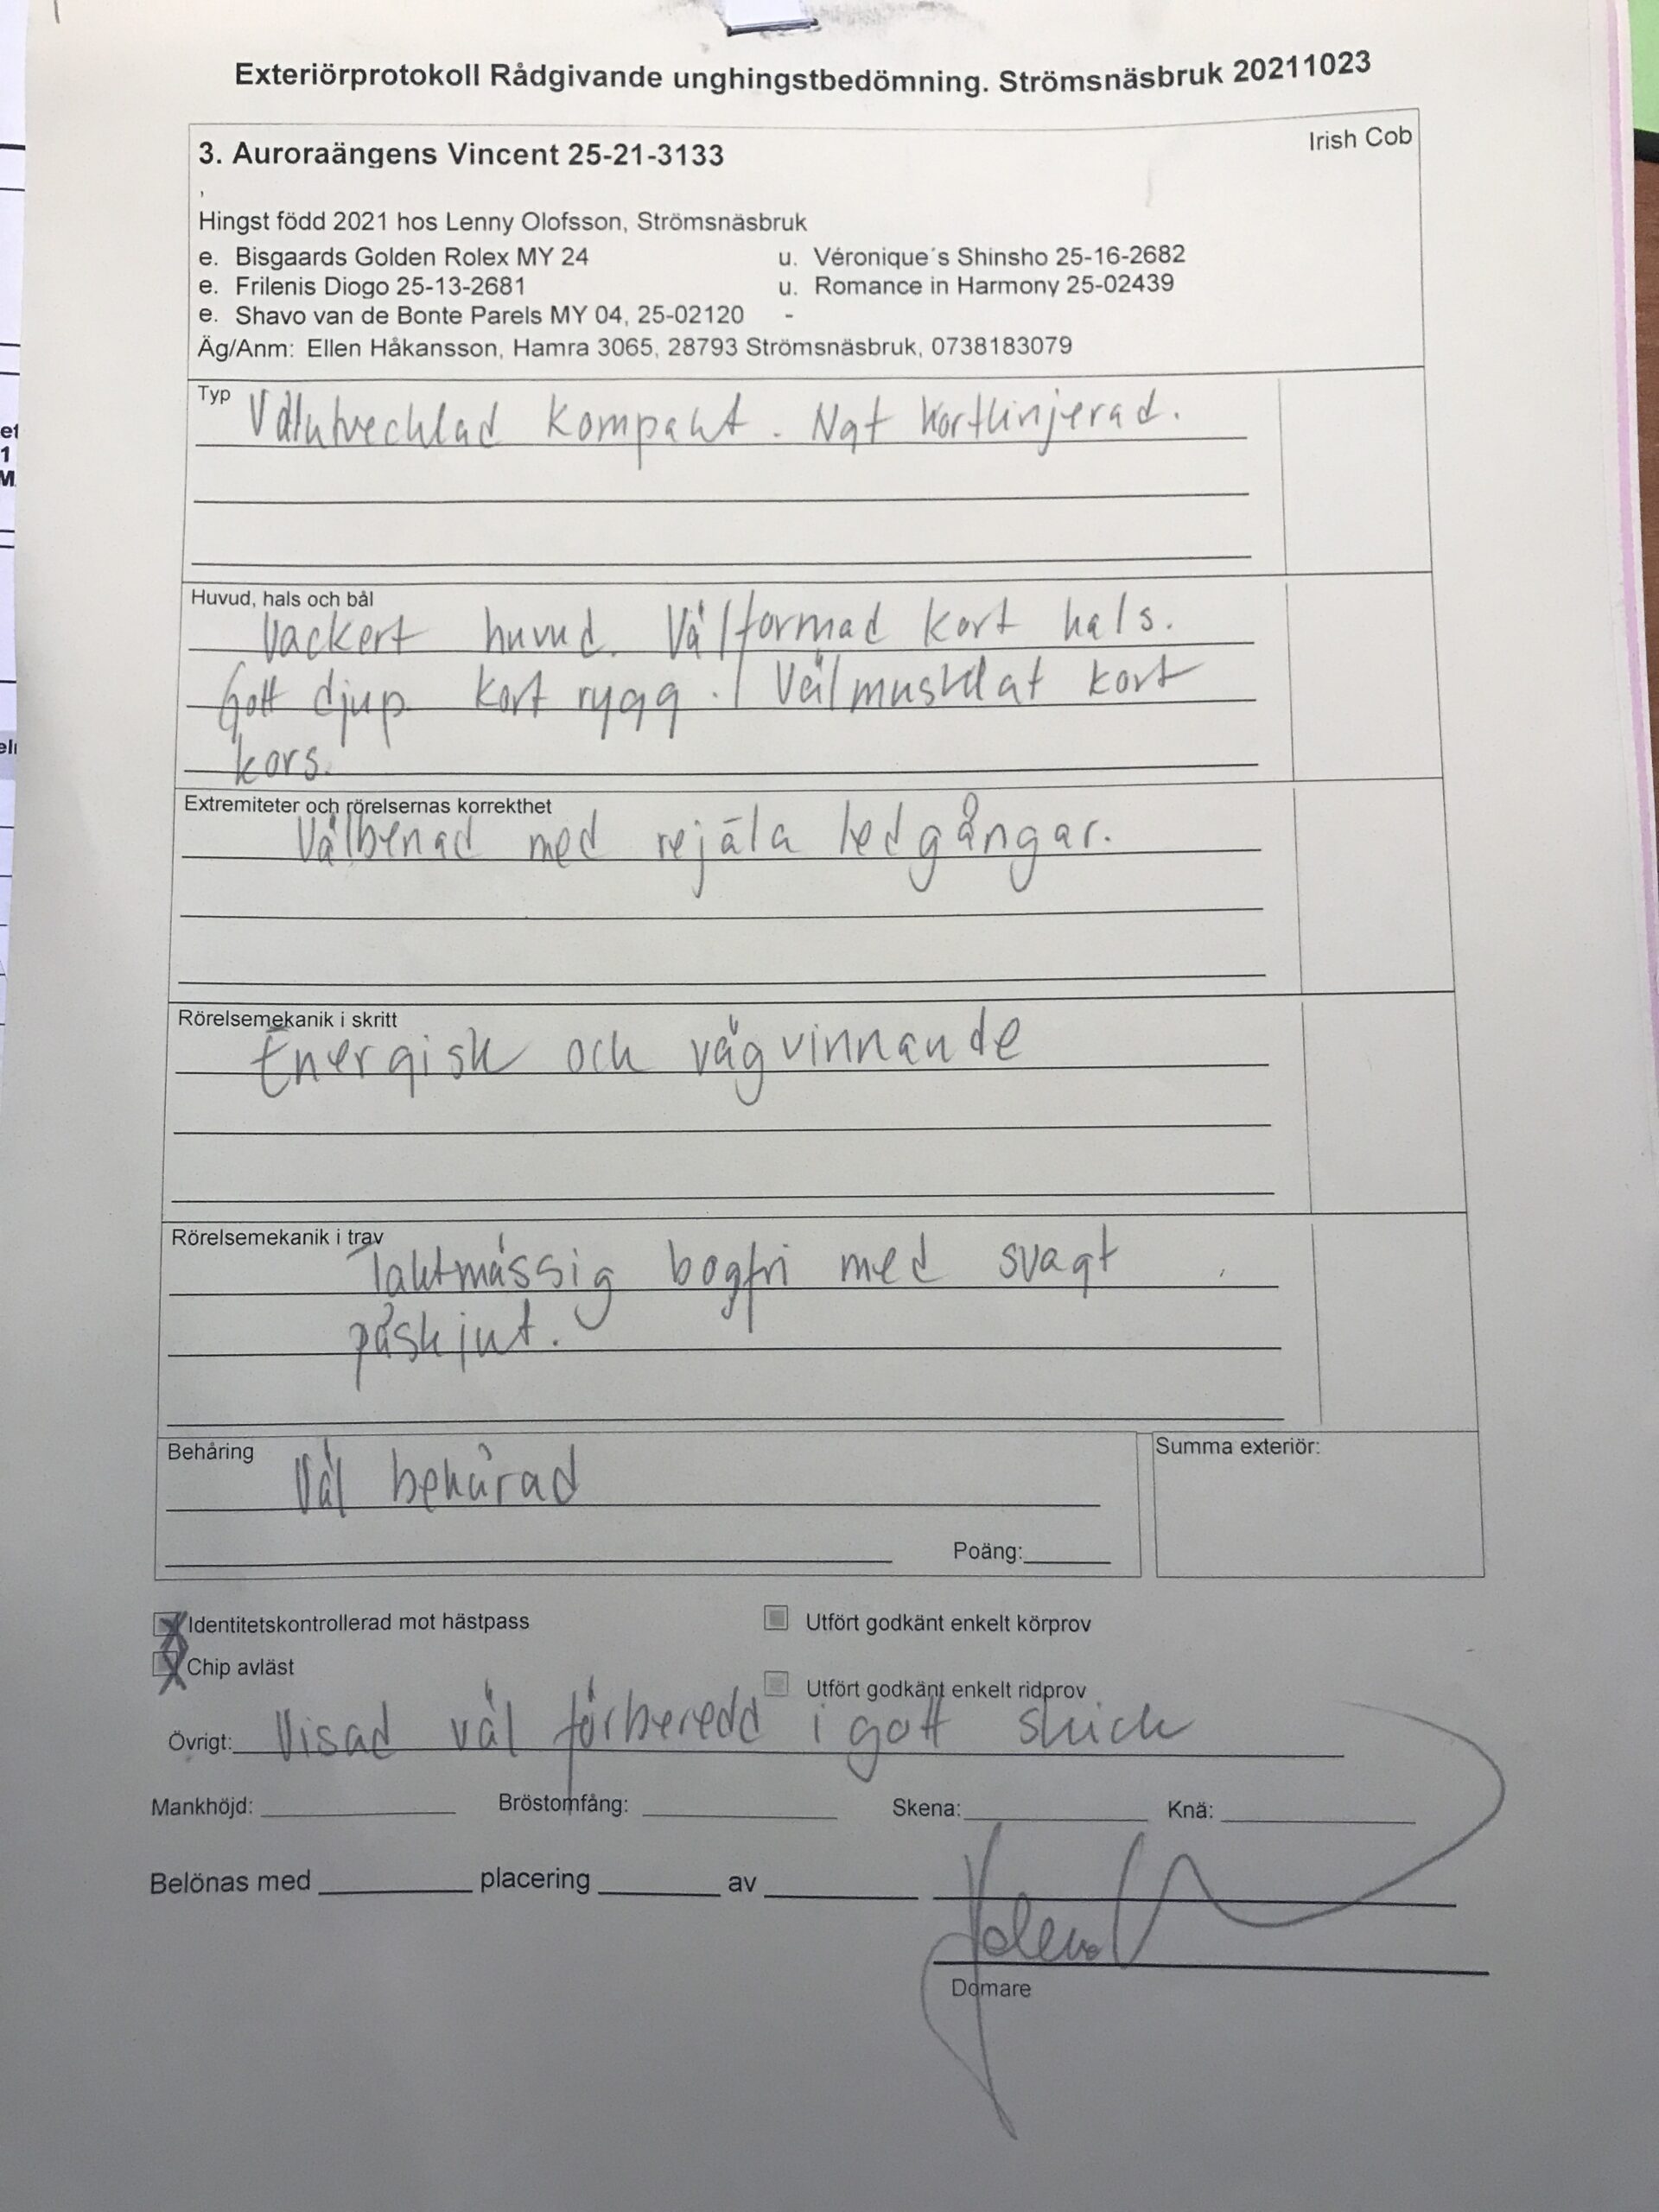 Exteriörprotokoll Rådgivande unghingstbedömning. Strömsnäsbruk 20211023
3. Auroraängens Vincent 25-21-3133
Irish Cob
,
Hingst född 2021 hos Lenny Olofsson, Strömsnäsbruk
e. Bisgaards Golden Rolex MY 24 u. Véronique´s Shinsho 25-16-2682
e. Frilenis Diogo 25-13-2681 u. Romance in Harmony 25-02439
e. Shavo van de Bonte Parels MY 04, 25-02120 -
Äg/Anm: Ellen Håkansson, Hamra 3065, 28793 Strömsnäsbruk, 0738183079
Typ
Välutvecklad kompakt. Ngt kortlinjerad.
Huvud, hals och bål
Vackert huvud. Välformad kort hals.
Gott djup. Kort rygg. Välmusklat kort
kors.
Extremiteter och rörelsernas korrekthet
Välbenad med rejäla ledgångar.
Rörelsemekanik i skritt
Energisk och vägvinnande
Rörelsemekanik i trav
Taktmässig bogfri med svagt
påskjut.
Behåring
Väl behårad
Summa exteriör:
Poäng:
Identitetskontrollerad mot hästpass Utfört godkänt enkelt körprov
Chip avläst
Utfört godkänt enkelt ridprov
Övrigt: Visad väl förberedd i gott skick
Mankhöjd: Bröstomfång: Skena: Knä:
Belönas med placering av
Domare